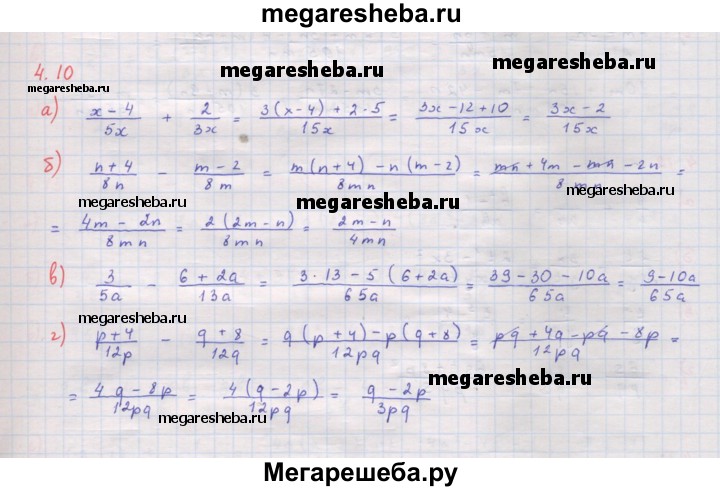 megaresheba.ru
4.10
megaresheba.ru
megaresheba.ru
megaresheba.ru
а) (x-4)/(5x) + 2/(3x) = (3(x-4) + 2·5)/(15x) = (3x-12+10)/(15x) = (3x-2)/(15x)
б) (n+4)/(8n) - (m-2)/(8m) = (m(n+4) - n(m-2))/(8mn) = (mn + 4m - mn - 2n)/(8mn) =
megaresheba.ru
megaresheba.ru
megaresheba.ru
= (4m - 2n)/(8mn) = (2(2m-n))/(8mn) = (2m-n)/(4mn)
в) 3/(5a) - (6+2a)/(13a) = (3·13 - 5(6+2a))/(65a) = (39-30-10a)/(65a) = (9-10a)/(65a)
megaresheba.ru
г) (p+4)/(12p) - (q+8)/(12q) = (q(p+4) - p(q+8))/(12pq) = (pq + 4q - pq - 8p)/(12pq) =
megaresheba.ru
= (4q-8p)/(12pq) = (4(q-2p))/(12pq) = (q-2p)/(3pq)
megaresheba.ru
Мегарешеба.ру